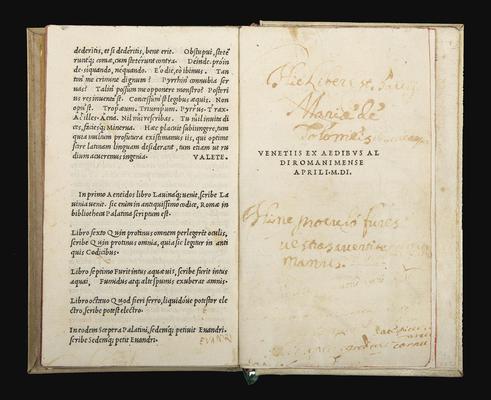 dederitis, et si dedéritis, bene erit. Obstupui, steté
runtq; comæ, cum steterunt contra. Deinde. proin
de. siquando, nequando. E'o die, eo ibimus. Tan
tùm me crimine dignum? Pyrrhin' connubia ser
uas? Talin' possum me opponere monstro? Posteri
us res inuenta est. Concessum est legibus æquis. Non
opus'st. Tropæum. Triumpum. Pyrrus. Trax.
Aciles. Aena. Nil mi rescribas. Tu nil inuita di
ces, faciesq; Minerua. Hæc placuit subiungere, tum
quia nullum profutura existimamus iis, qui optime
scire latinam linguam desiderant, tum etiam ut ru
dium acueremus ingenia. VALETE.
In primo Aeneidos libro Lauinaq; uenit, scribe La
uinia uenit. sic enim in antiquissimo codice, Romæ in
bibliotheca Palatina scriptum est.
Libro sexto Quin protinus omnem perlegerēt oculis,
scribe Quin protinus omnia, quia sic legitur in anti
quis Codicibus.
Libro septimo Furit intus aquæ uis, scribe furit intus
aquai, Fumidus atq; alte spumis exuberat amnis.
Libro octauo Quod fieri ferro, liquidóue potestor ele
ctro, scribe potest electro.
In eodem Sceptra Palatini, sedemq; petiuit Euandri.
scribe Sedemq; petit Euandri.
EVAND
Hic Liber est
Mariæ de
Tolomeis
VENETIIS EX AEDIBVS AL
DI ROMANI MENSE
APRILI. M. DI.
Hinc procul fures
uestras auertite
manus.